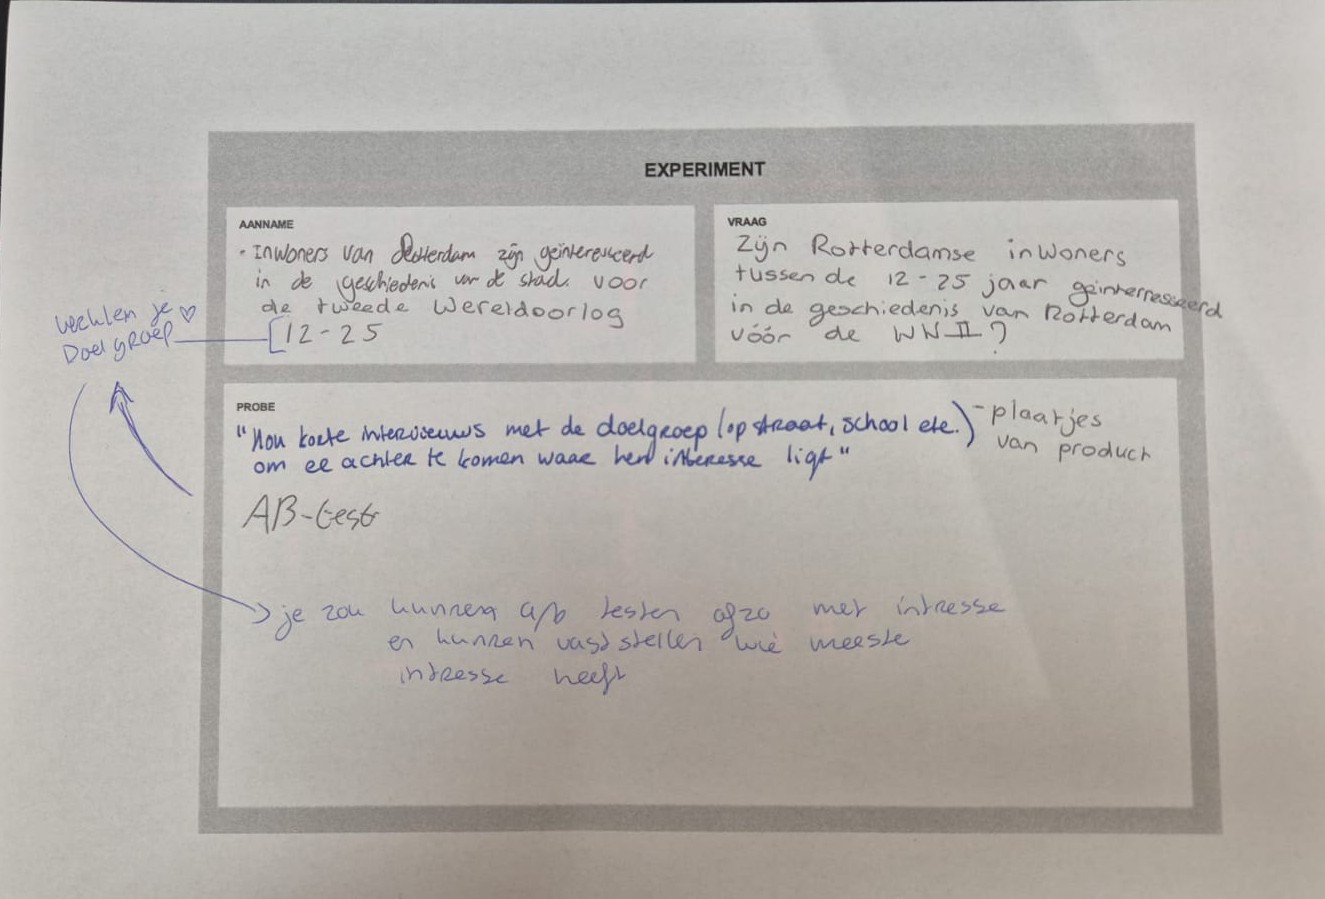 EXPERIMENT
AANNAME
· Inwoners van Rotterdam zijn geïnteresseerd
in de geschiedenis van de stad voor
de tweede Wereldoorlog
[12-25
VRAAG
Zijn Rotterdamse inwoners
tussen de 12-25 jaar geïnterresseerd
in de geschiedenis van Rotterdam
vóór de WWII?
Doelgroep
PROBE
"Hou korte interviewws met de doelgroep (op straat, school etc.)
om er achter te komen waar hen interesse ligt"
- plaatjes
van product
AB-test
→ je zou kunnen a/b testen ofzo met intresse
en kunnen vaststellen wie meeste
intresse heeft